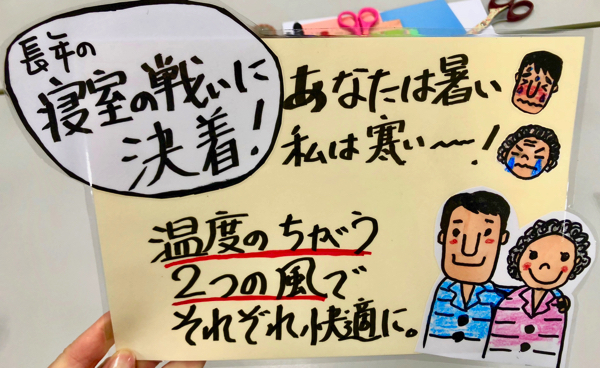 長年の
寝室の戦いに
決着!
あなたは暑い
私は寒い〜!
温度のちがう
2つの風で
それぞれ快適に。